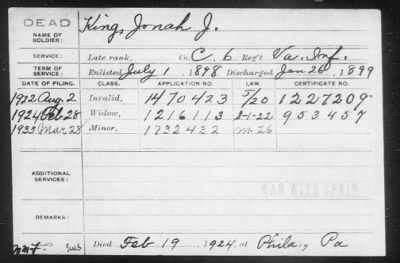 DEAD
NAME OF SOLDIER: King, Jonah J.
SERVICE: Late rank, Co. C, 6 Reg't Va. Inf.
TERM OF SERVICE: Enlisted July 1 1898 Discharged Jan 26, 1899
DATE OF FILING. CLASS. APPLICATION NO. LAW. CERTIFICATE NO.
1922 Aug. 2 Invalid, 1470423 5/20 1227209
1924 Feb 28 Widow, 1216113 2-1-22 953457
1933 Mar 28 Minor, 1732432 m 26
ADDITIONAL SERVICES:
REMARKS:
Died Feb 19, 1924, at Phila., Pa